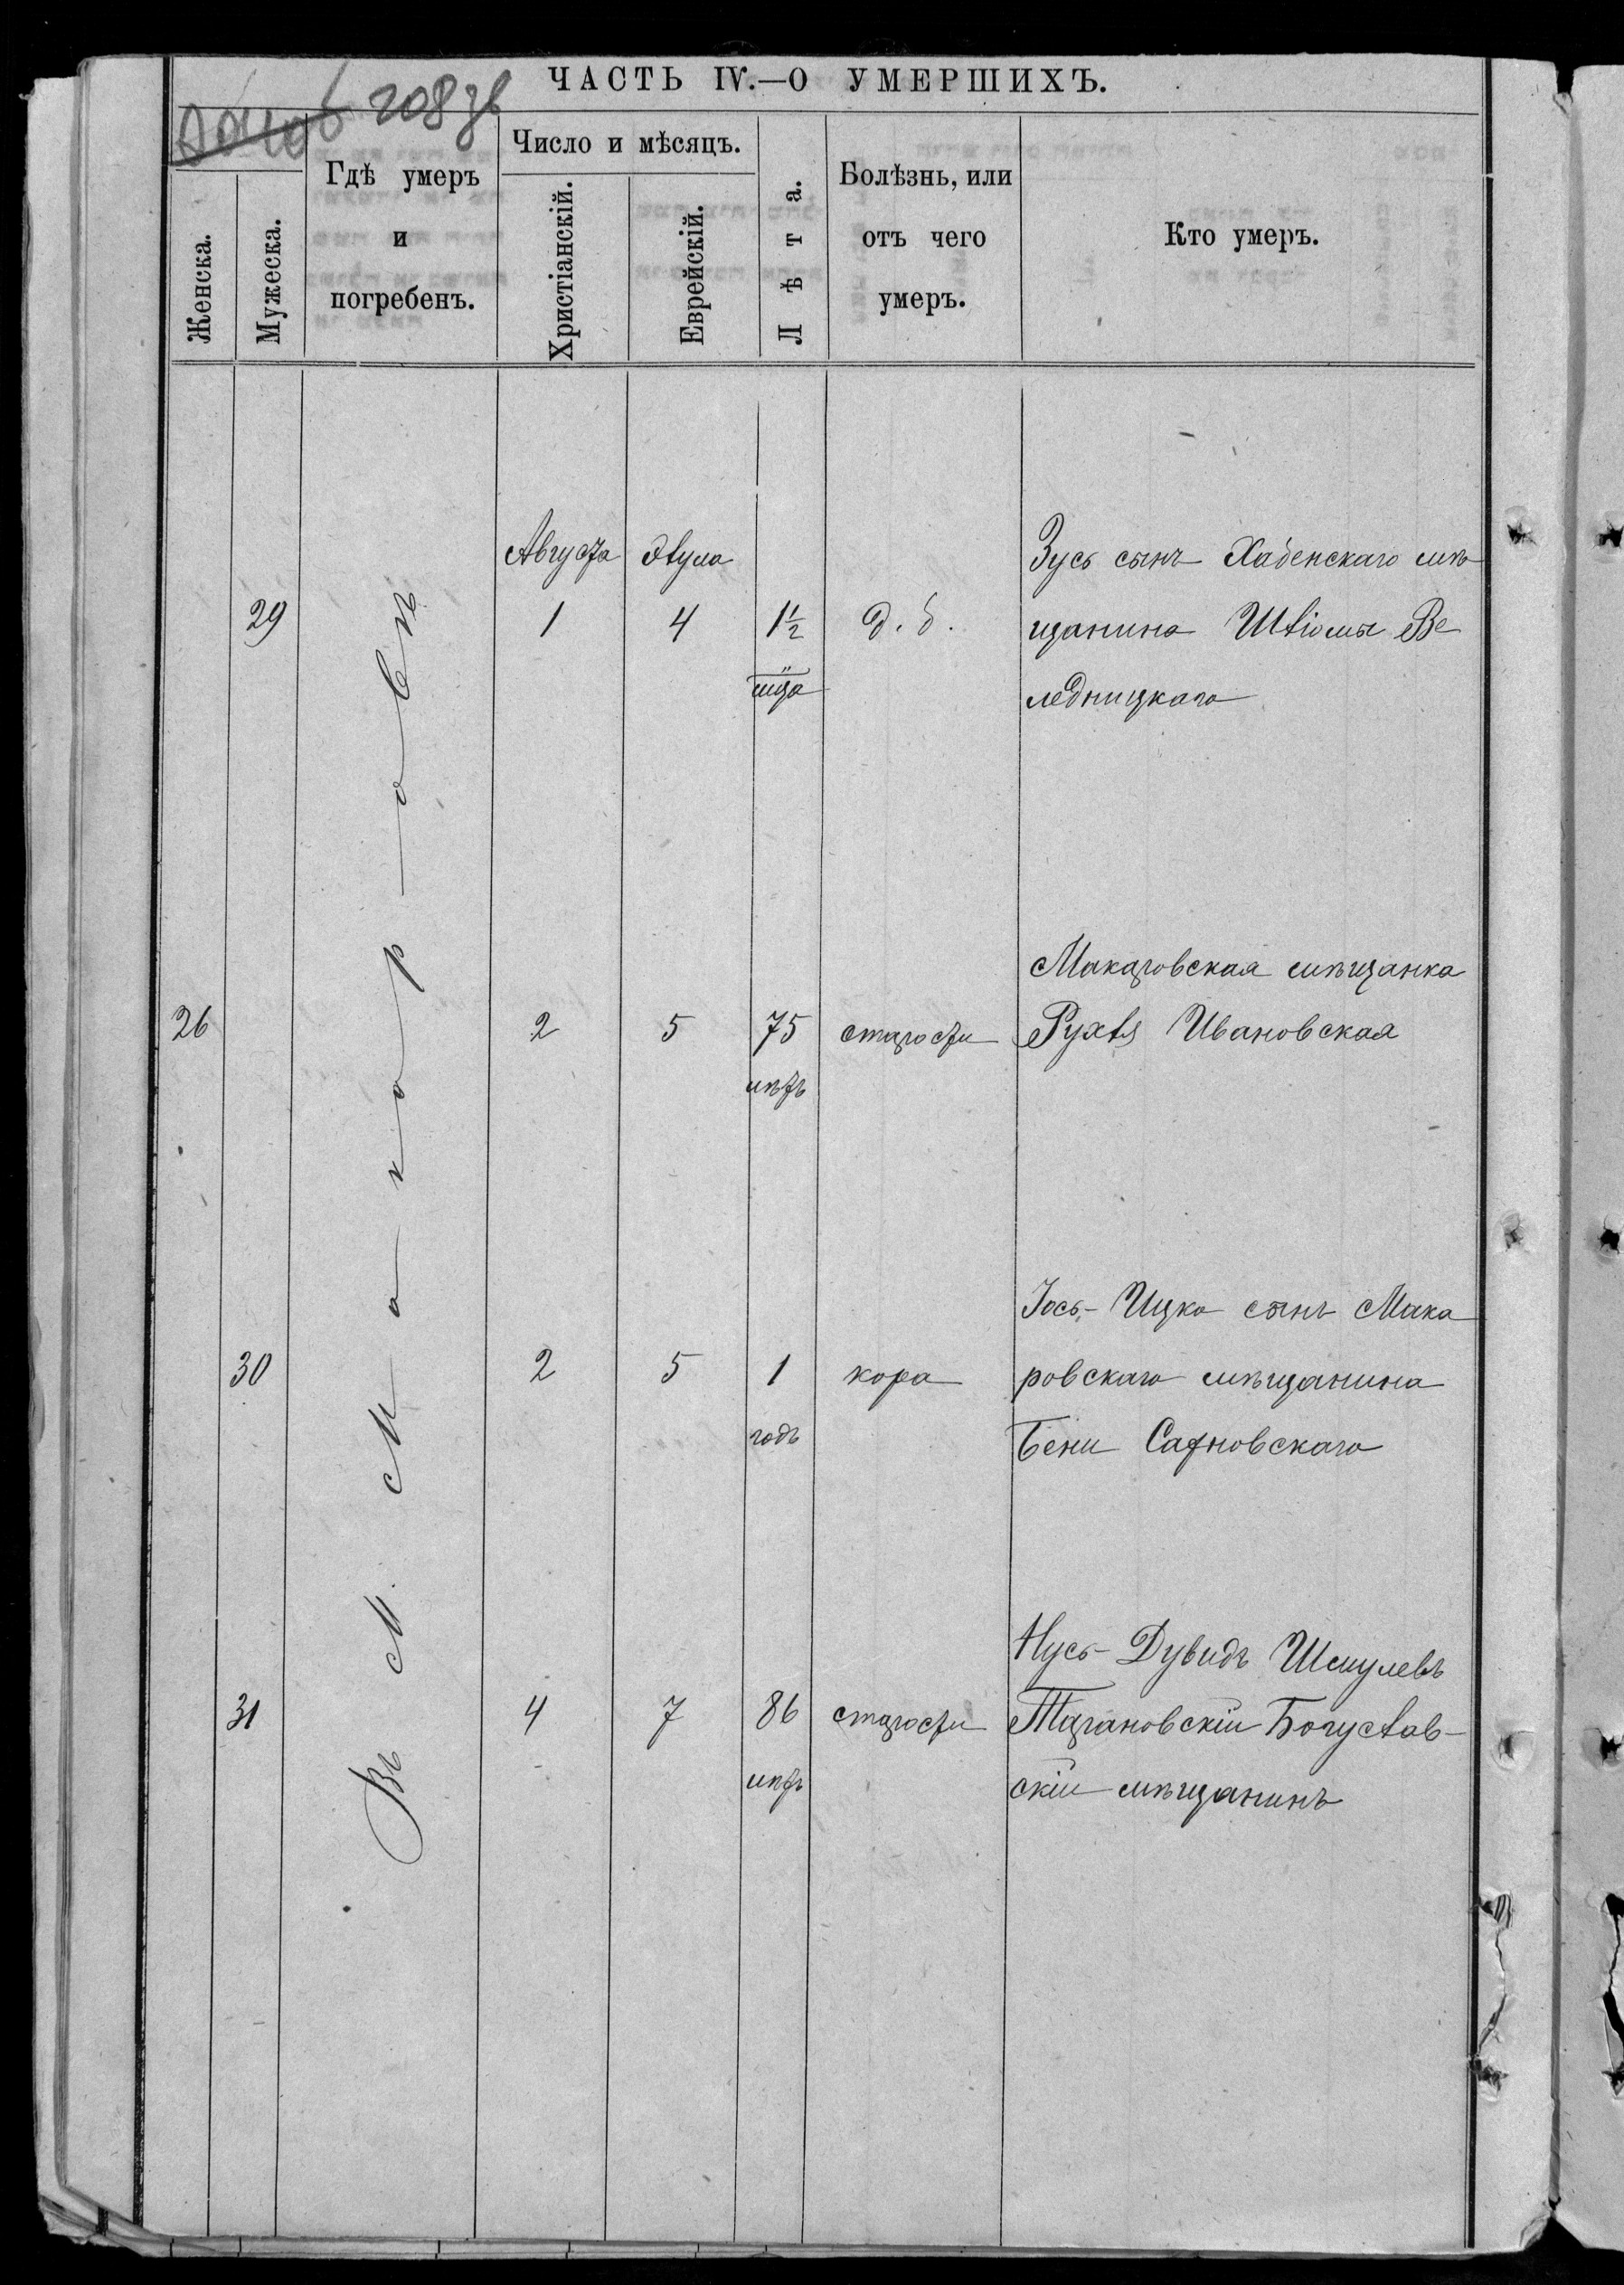 ЧАСТЬ IV.—О УМЕРШИХЪ.
208 зв
Женска.
Мужеска.
Гдѣ умеръ
и
погребенъ.
Число и мѣсяцъ.
Христіанскій.
Еврейскій.
Лѣта.
Болѣзнь, или
отъ чего
умеръ.
Кто умеръ.
Въ М. Макаровѣ
Августа Элула
29 1 4 1½ д. б.
м̅ца
Зусь сынъ Хабенскаго мѣ
щанина Шліомы Ве
ледницкаго
26 2 5 75 старости
лѣтъ
Макаровская мѣщанка
Рухля Ивановская
30 2 5 1 кора
годъ
Іось-Ицко сынъ Мака
ровскаго мѣщанина
Бени
31 4 7 86 старости
лѣтъ
Нусь-Дувидъ Шмулевъ
Таргановскій Богуслав-
скій мѣщанинъ